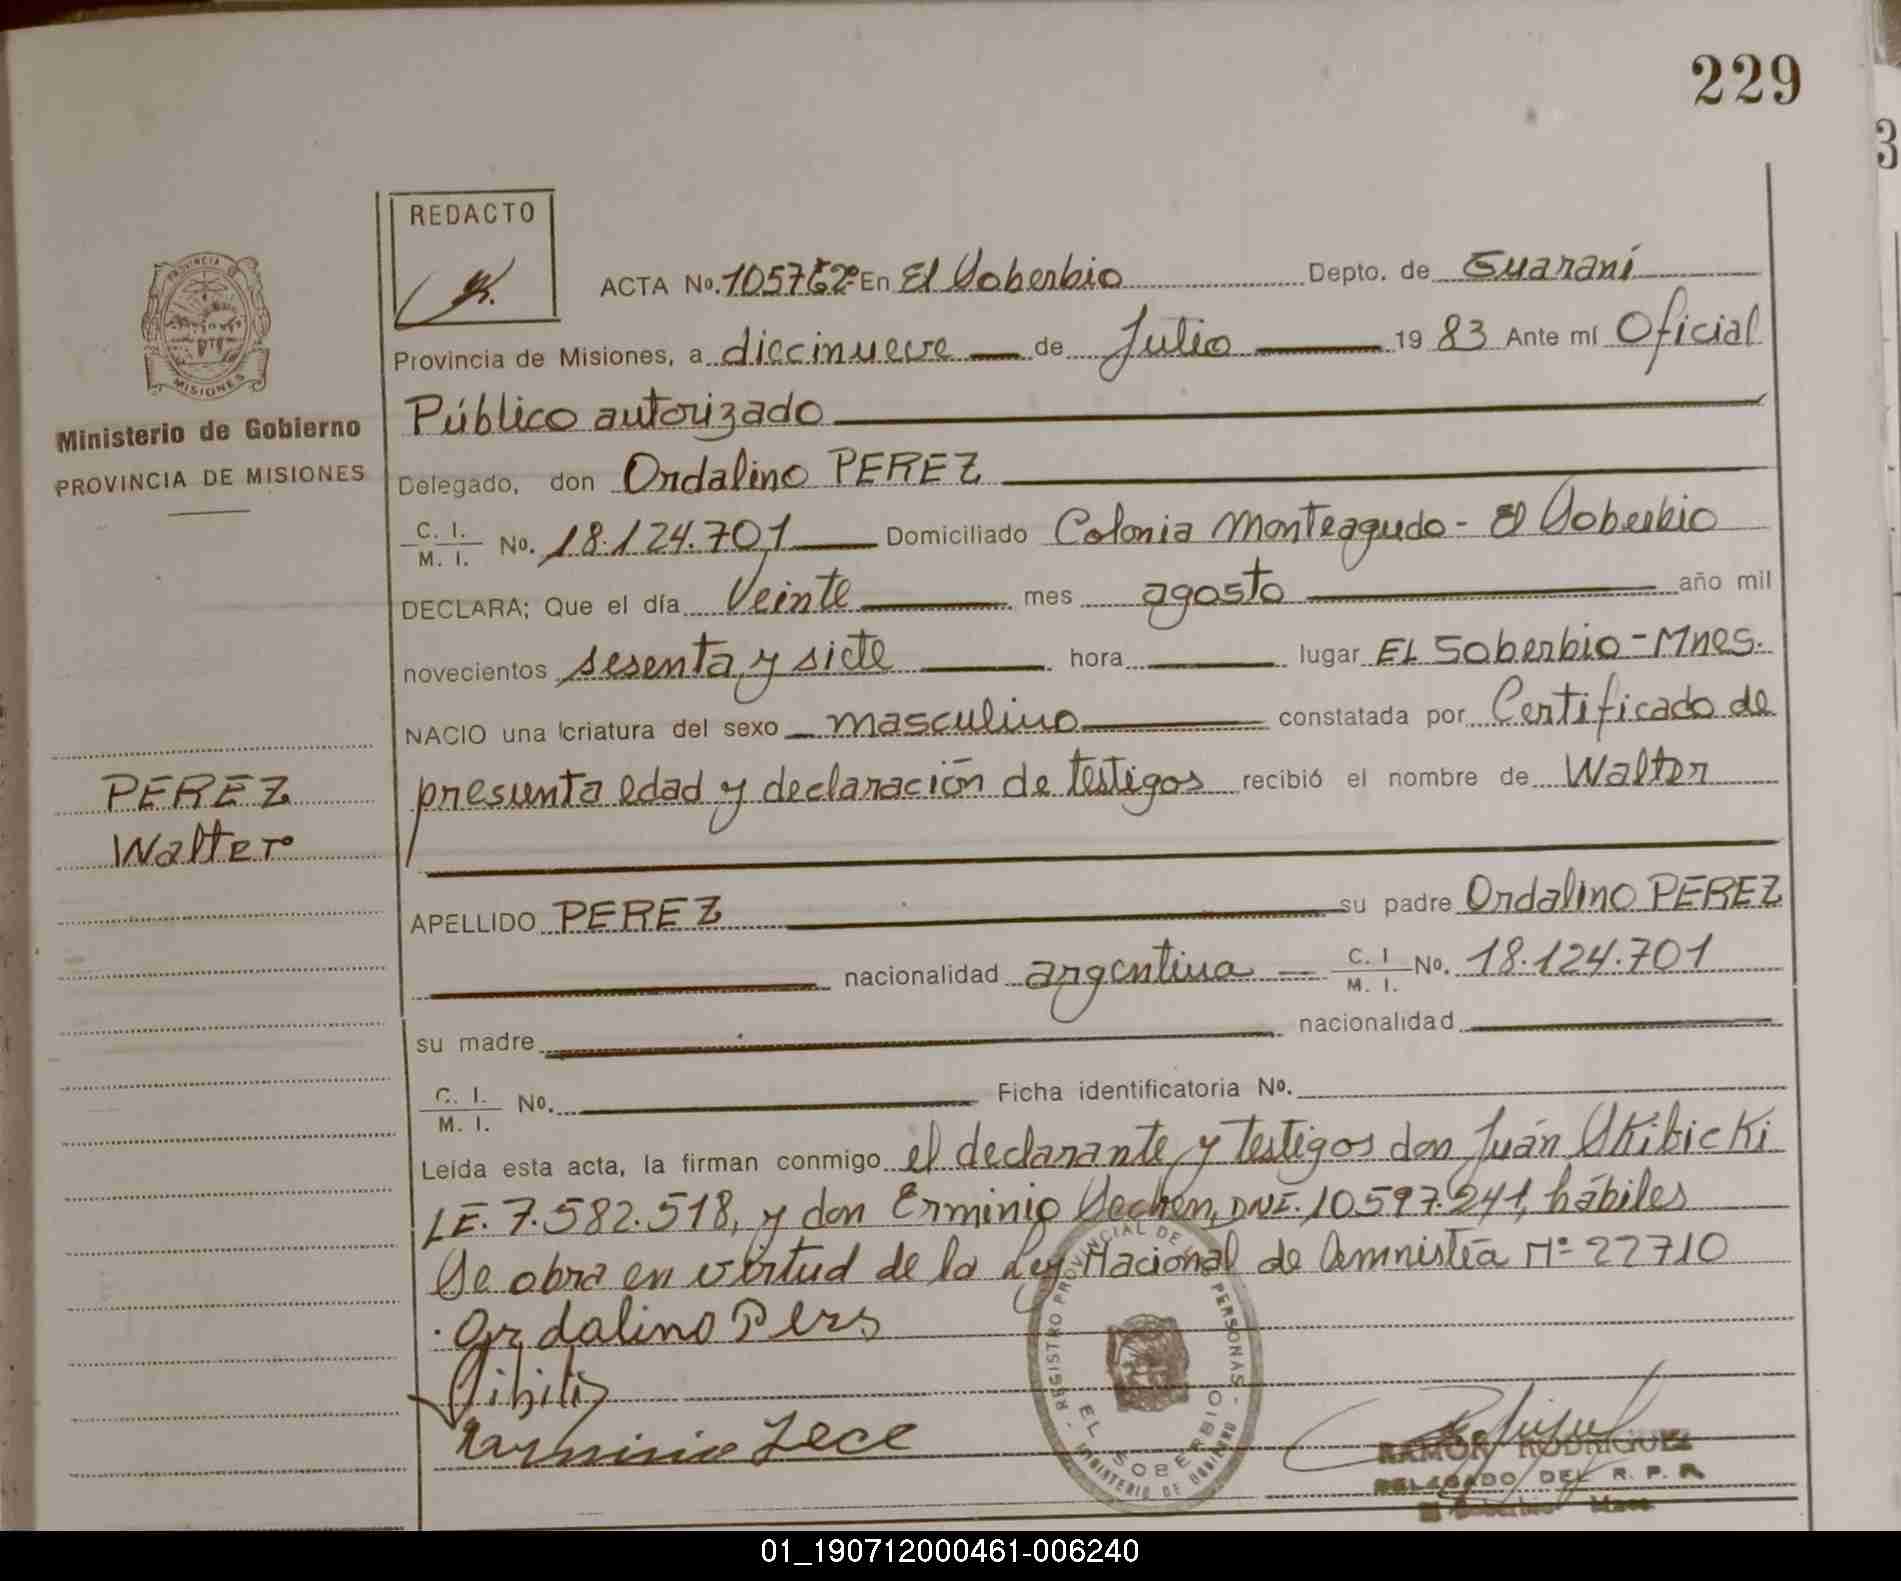 229
3
REDACTO
PROVINCIA
MISIONES
Ministerio de Gobierno
PROVINCIA DE MISIONES
ACTA No. En El Soberbio Depto. de Guaraní
Provincia de Misiones, a diecinueve de Julio 19 83 Ante mí Oficial
Público autorizado
Delegado, don Ordalino PEREZ
C. I.
M. I. No. 18.124.701 Domiciliado Colonia Monteagudo - El Soberbio
DECLARA; Que el día Veinte mes agosto año mil
novecientos sesenta y siete hora lugar EL Soberbio - Mnes.
NACIO una criatura del sexo masculino constatada por Certificado de
presunta edad y declaración de testigos recibió el nombre de Walter
PEREZ
Walter
APELLIDO PEREZ su padre Ordalino PEREZ
nacionalidad argentina C. I
M. I. No. 18.124.701
su madre nacionalidad
C. I.
M. I. No. Ficha identificatoria No.
Leída esta acta, la firman conmigo el declarante y testigos don Juán Skibicki
LE. 7.582.518, y don Erminio DNI. 10.597.241, hábiles
Se obra en virtud de la Ley Nacional de Amnistía Nº 22710
Ordalino Pers
REGISTRO PROVINCIAL DE PERSONAS
EL SOBERBIO
MINISTERIO DE GOBIERNO
RAMON RODRIGUEZ
DELEGADO DEL R. P. P.
El Soberbio Mnes
01_190712000461-006240